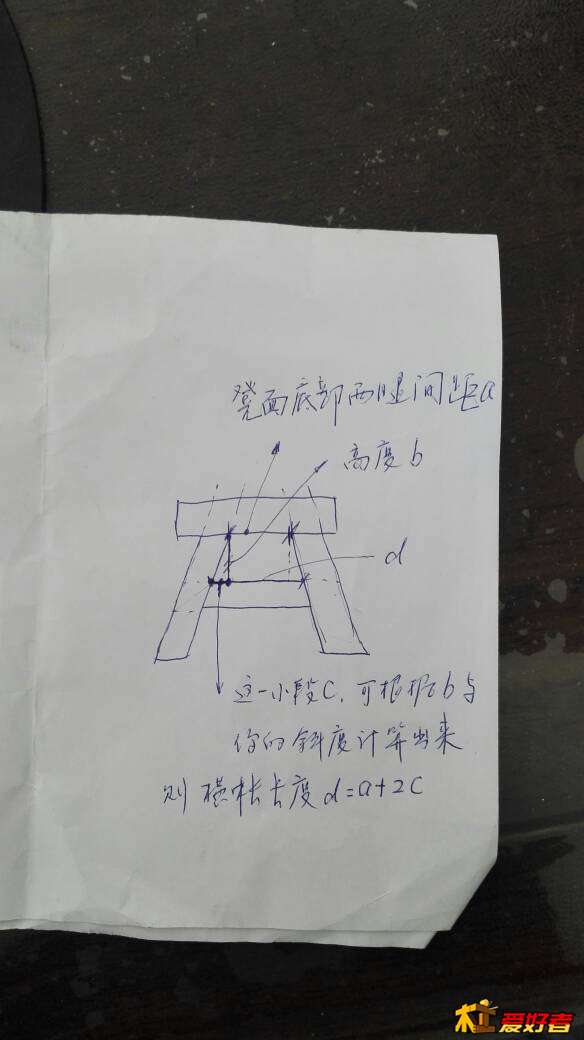 凳面底部两腿间距a
高度b
d
这一小段C,可根据b与
你的斜度计算出来
则 横枨长度d=a+2C
木工爱好者